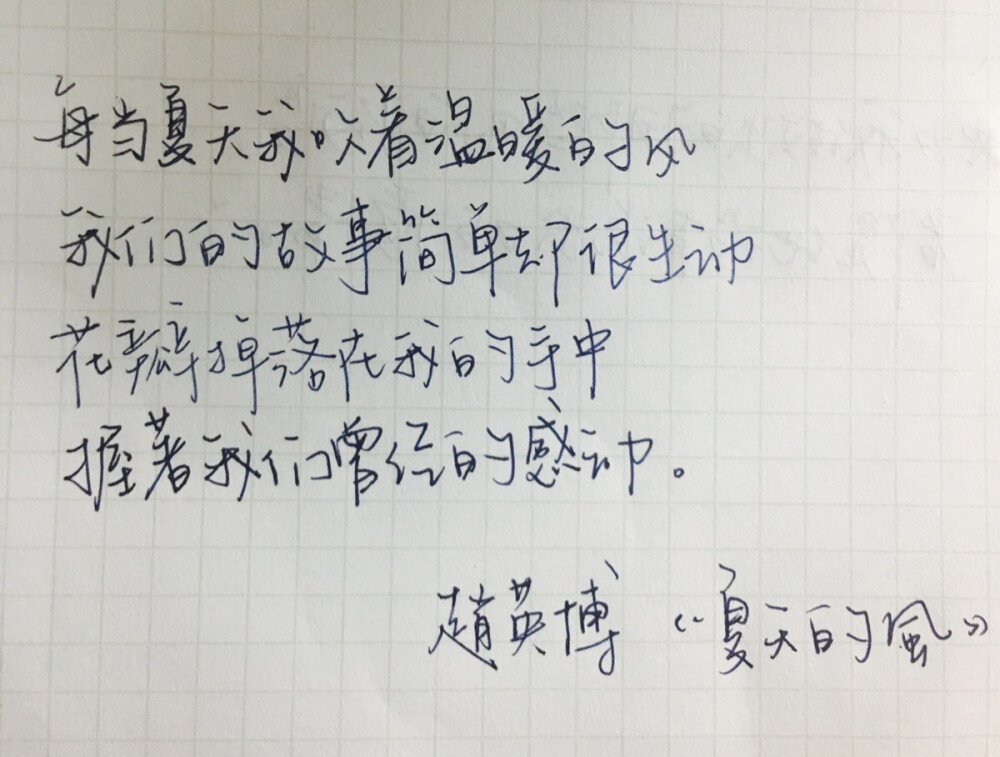 每当夏天我吹着温暖的风
我们的故事简单却很生动
花瓣掉落在我的手中
握著我们曾经的感动。
趙英博 《夏天的風》